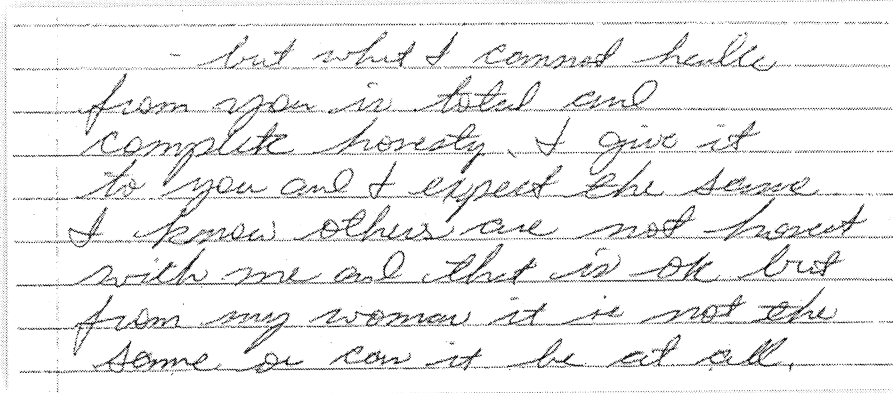 - but what I cannot handle
from you is total and
complete honesty. I give it
to you and I expect the same
I know others are not honest
with me and that is ok but
from my woman it is not the
same or can it be at all.